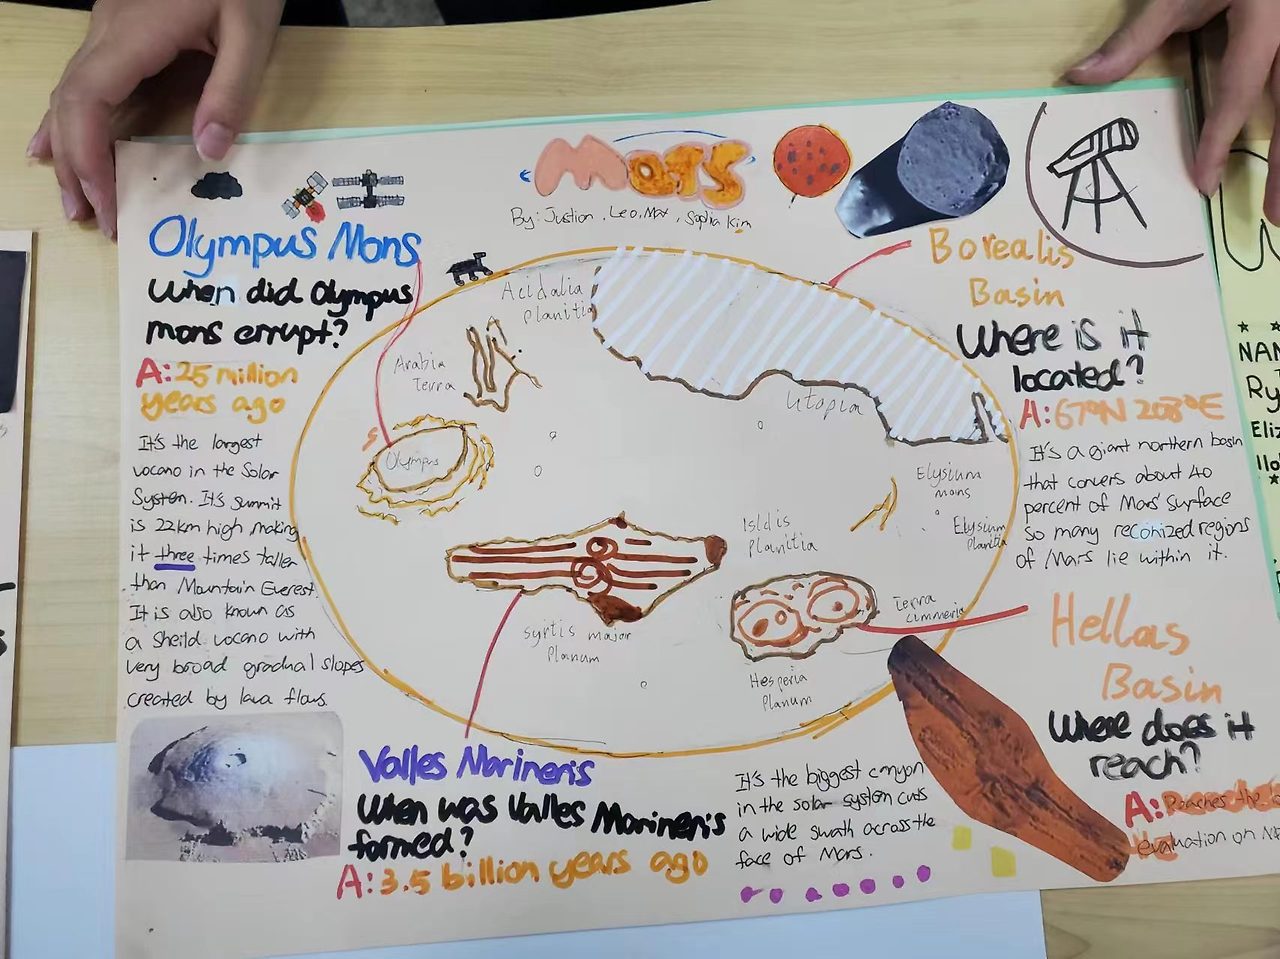 Mars
By: Justion, Leo, Max, Sophia Kim
Olympus Mons
When did Olympus
mons errupt?
A: 25 million
years ago
It's the largest
vocano in the Solar
System. It's summit
is 22km high making
it three times taller
than Mountain Everest.
It is also known as
a sheild vocano with
very broad gradual slopes
created by lava flows.
Acidalia
planitia
Arabia
Terra
Olympus
Utopia
Elysium
mons
Elysium
planitia
Isidis
planitia
Syrtis major
Planum
Terra
cimmeria
Hesperia
Planum
Borealis
Basin
Where is it
located?
A: 67°N 208°E
It's a giant northern basin
that convers about 40
percent of Mars' surface
so many reconized regions
of Mars lie within it.
Hellas
Basin
Where does it
reach?
A: Reaches the
evaluation on
Valles Marineris
When was Valles Marineris
formed?
A: 3.5 billion years ago
It's the biggest canyon
in the solar system cuts
a wide swath across the
face of Mars.
NAM
Ry
Eliz